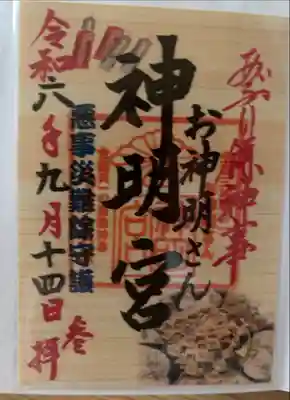 あぶり餅神事
お神明さん
神明宮
悪事災難除守護
令和六年九月十四日
参拝